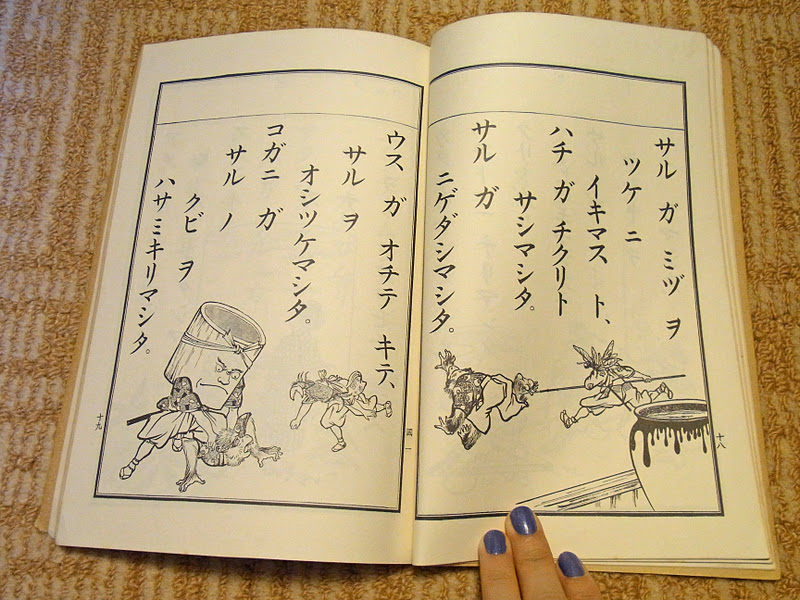 サル ガ ミヅ ヲ
ツケ ニ
イキマス ト、
ハチ ガ チクリト
サシマシタ。
サル ガ
ニゲダシマシタ。
十八
ウス ガ オチテ キテ、
サル ヲ
オシツケマシタ。
コガニ ガ
サル ノ
クビ ヲ
ハサミキリマシタ。
十九
國一